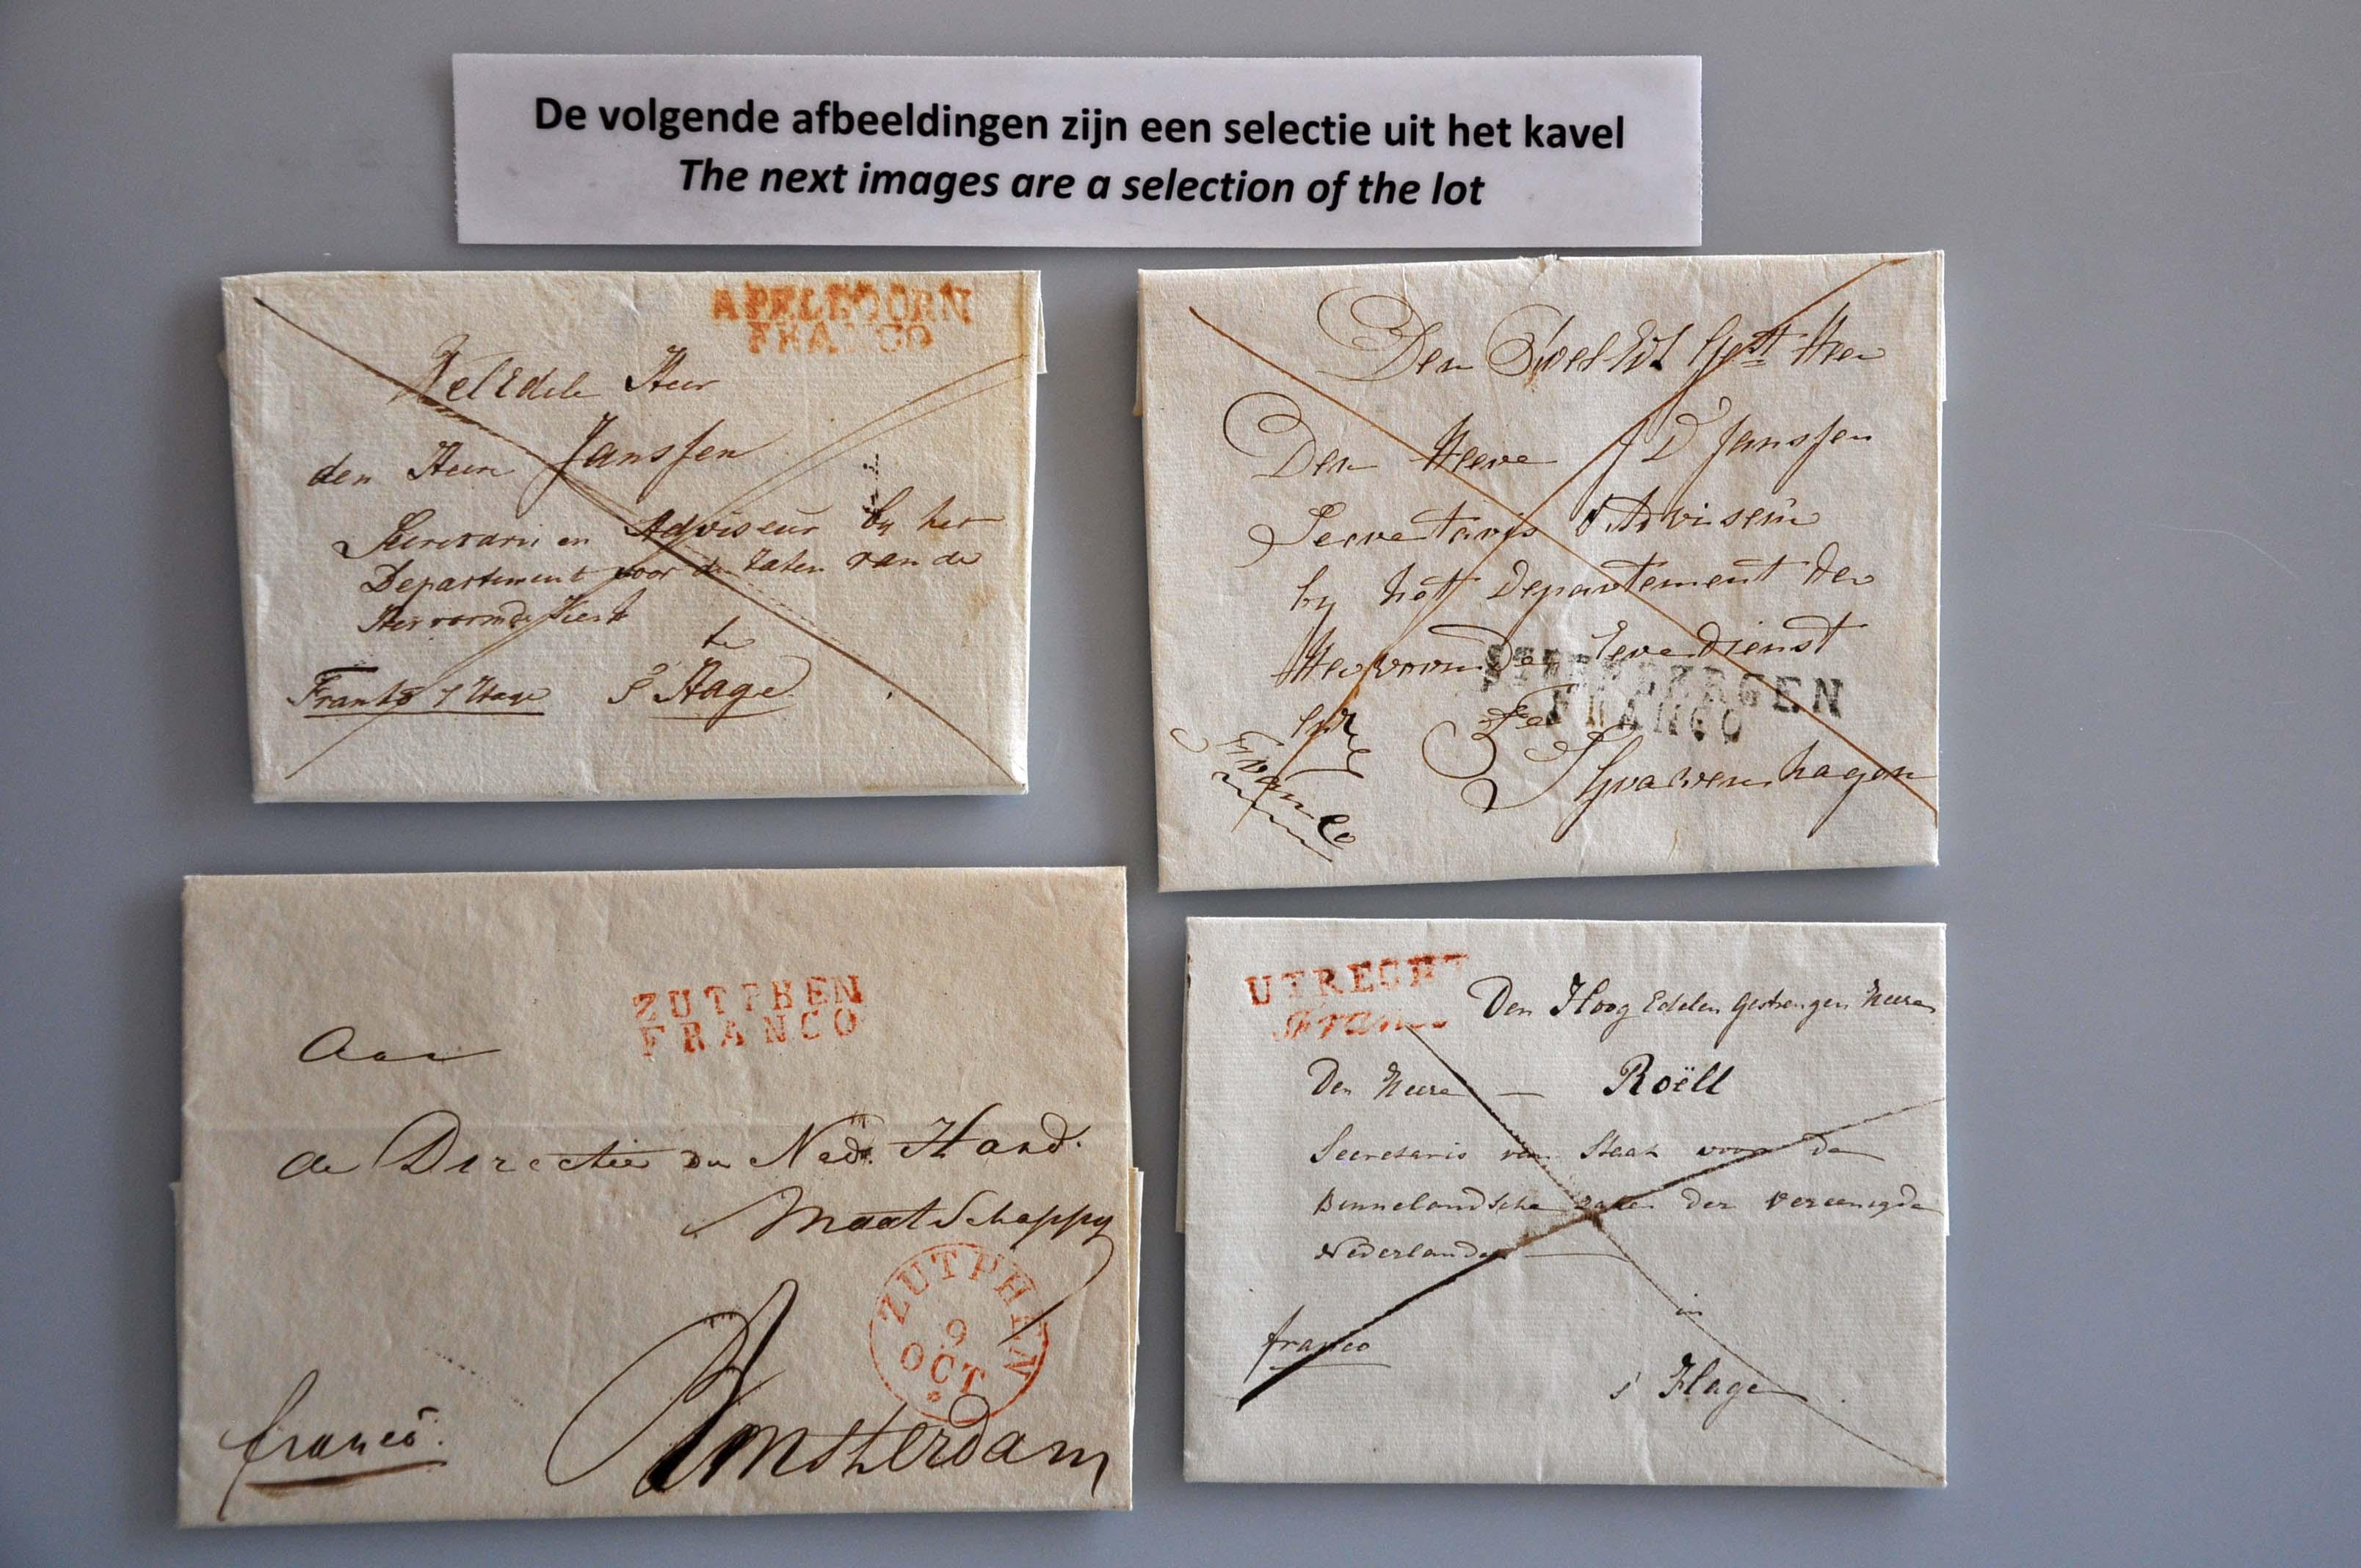 De volgende afbeeldingen zijn een selectie uit het kavel
The next images are a selection of the lot
APELDOORN
FRANCO
WelEdele Heer
den Heere Janssen
Secretaris en Adviseur by het
Departement voor de Zaken van de
Hervormde Kerk
te
s' Hage
Franko s' Hage
Den Heer
Den Heere J D Janssen
Secretaris & Adviseur
by het Departement der
Hervormde Eeredienst
te
S Gravenhagen
Franco
STEENBERGEN
FRANCO
ZUTPHEN
FRANCO
Aan
de Directie der Nedr. Hand.
Maatschappy
ZUTPHEN
9
OCT
Amsterdam
franco.
UTRECHT
Franco
Den Hoog Edelen Gestrengen Heere
Den Heere — Roëll
Secretaris van Staat voor de
Binnelandsche Zaken der Vereenigde
Nederlanden —
in
s' Hage
franco